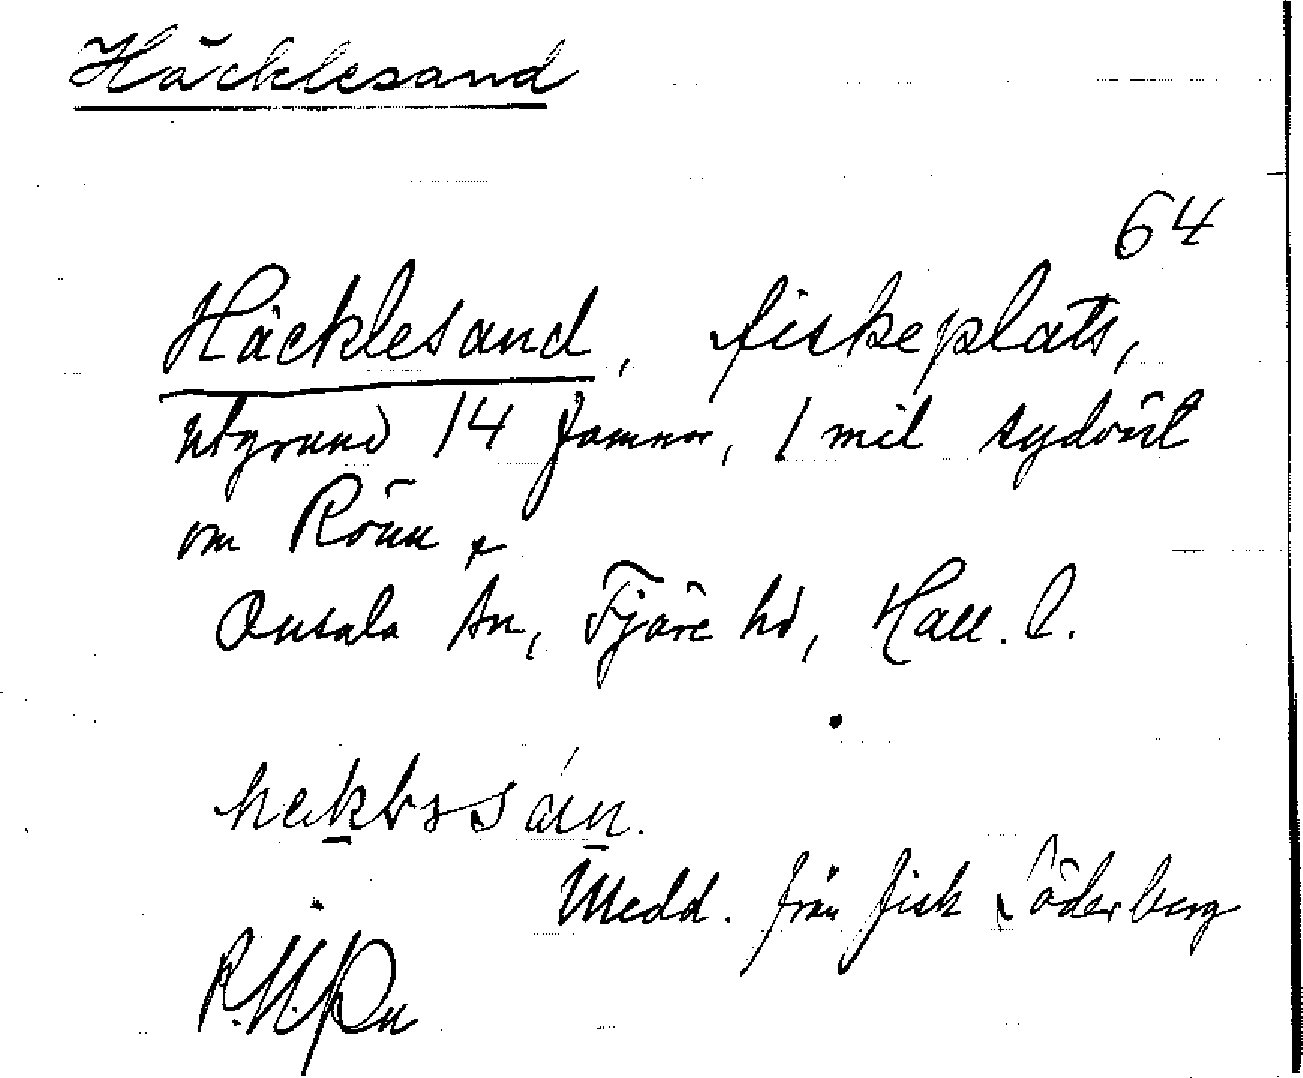 Häcklesand
64
Häcklesand, fiskeplats,
utgrund 14 famnar, 1 mil sydväst
om Rönn
Onsala sn, Fjäre hd, Hall. l.
Medd. från fisk Söderberg